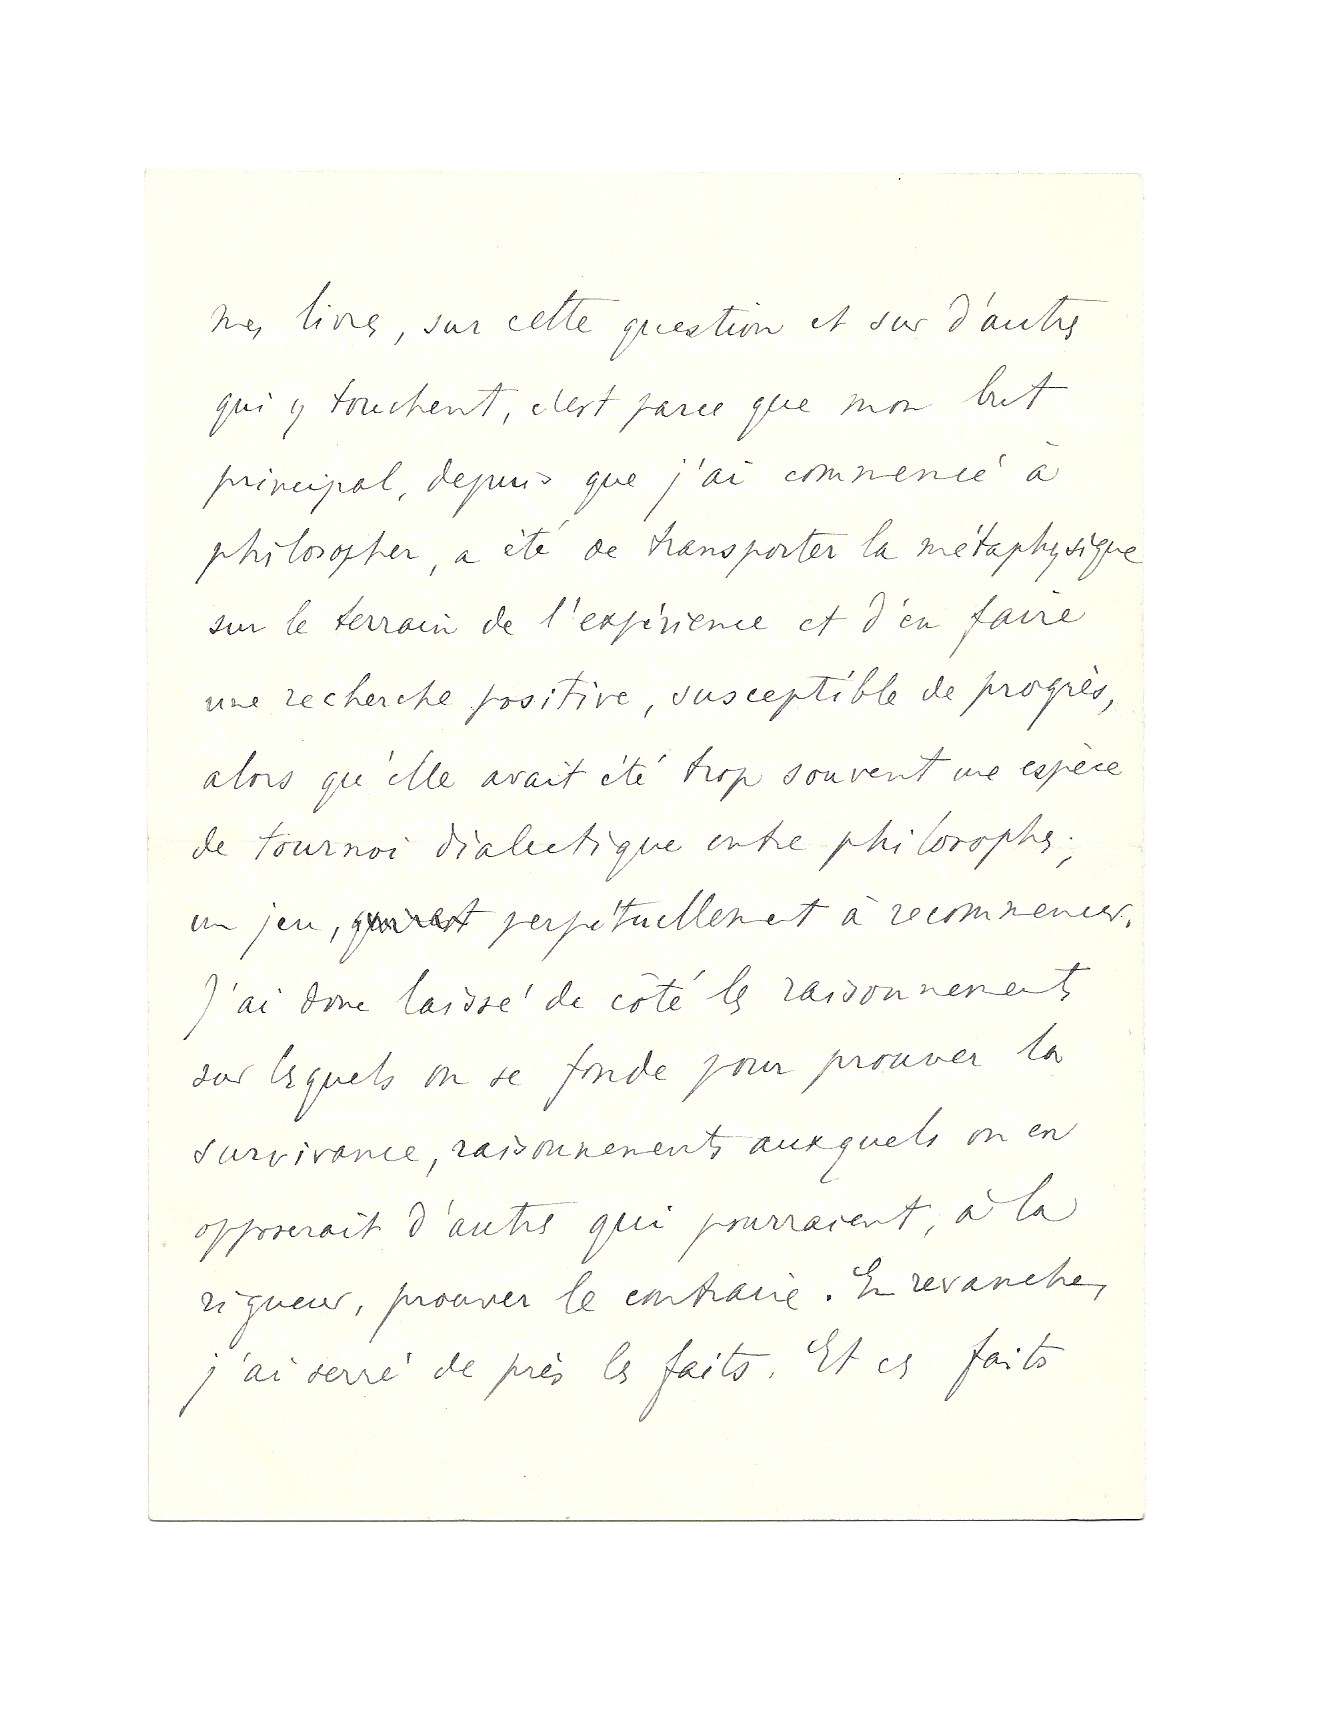 mes livres, sur cette question et sur d'autres
qui y touchent, c'est parce que mon but
principal, depuis que j'ai commencé à
philosopher, a été de transporter la métaphysique
sur le terrain de l'expérience et d'en faire
une recherche positive, susceptible de progrès,
alors qu'elle avait été trop souvent une espèce
de tournoi dialectique entre philosophes,
un jeu, qui est perpétuellement à recommencer.
J'ai donc laissé de côté les raisonnements
sur lesquels on se fonde pour prouver la
survivance, raisonnements auxquels on en
opposerait d'autres qui pourraient, à la
rigueur, prouver le contraire. En revanche,
j'ai serré de près les faits. Et ces faits